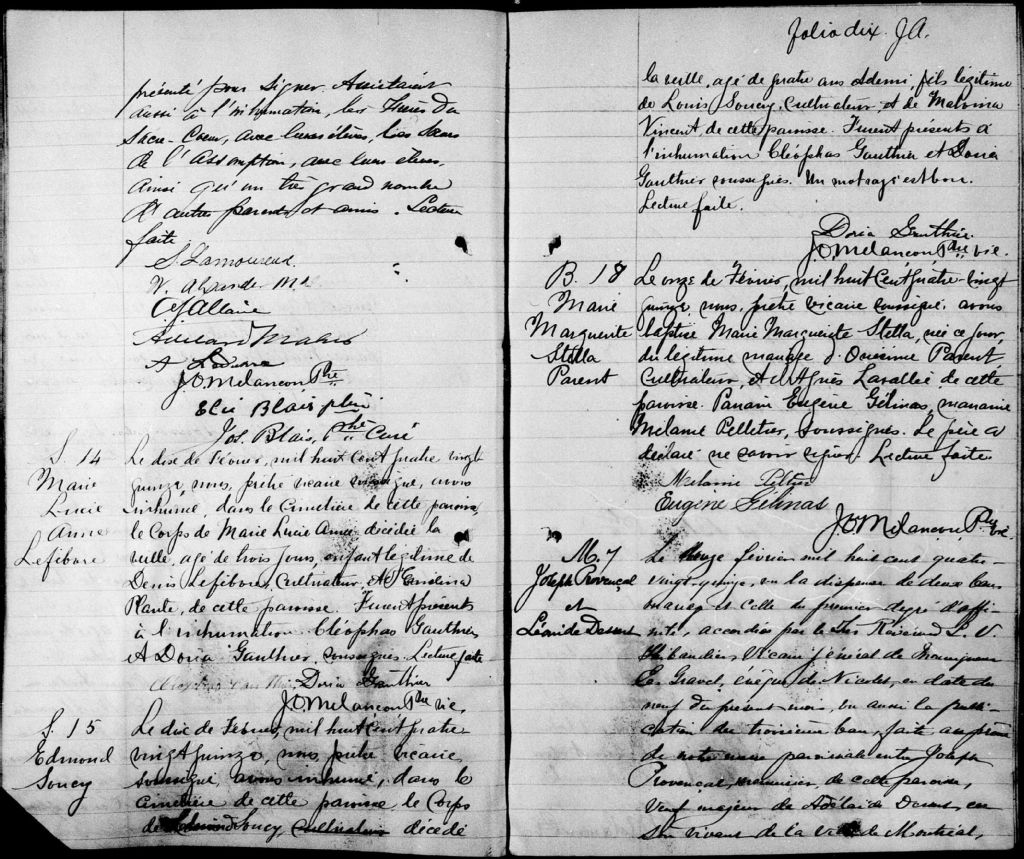 présenté pour signer. Assistaient
aussi à l'inhumation, les Frères du
Sacré-Coeur, avec leurs élèves, les Sœurs
de l'Assomption, avec leurs élèves,
ainsi qu'un très grand nombre
d'autres parents et amis. Lecture
faite
S. Lamoureux
Allaire
A
J.O. Melancon Ptre
Elie Blais ptre
Jos. Blais, Ptre Curé
S. 14
Marie
Lucie
Anne
Lefebvre
Le dix de Février, mil huit cent quatre vingt
quinze, nous, prêtre vicaire soussigné, avons
inhumé, dans le cimetière de cette paroisse
le Corps de Marie Lucie Anna décédée la
veille, agé de trois jours, enfant légitime de
Denis Lefebvre, Cultivateur, et d'Exelina
Plante, de cette paroisse. Furent présents
à l'inhumation Cléophas Gauthier
et Doria Gauthier, soussignés. Lecture faite
Doria Gauthier
J.O. Melancon Ptre vic.
S. 15
Edmond
Soucy
Le dix de Février, mil huit Cent quatre
vingt quinze, nous, prêtre vicaire
soussigné, avons inhumé, dans le
cimetière de cette paroisse le Corps
de Edmond Soucy Cultivateur décédé
folio dix. J.A.
la veille, agé de quatre ans & demi, fils légitime
de Louis Soucy, Cultivateur, et de Malvina
Vincent, de cette paroisse. Furent présents à
l'inhumation Cléophas Gauthier et Doria
Gauthier soussignés. Un mot rayé est bon.
Lecture faite.
Doria Gauthier
J.O. Melancon Ptre vic.
B. 18
Marie
Marguerite
Stella
Parent
Le onze de Février, mil huit Cent quatre-vingt
quinze, nous, prêtre vicaire soussigné, avons
baptisé Marie Marguerite Stella, née ce jour,
du légitime mariage d'Onésime Parent
Cultivateur, et d'Agnès Lavallée de cette
paroisse. Parrain Eugène Gélinas, marraine
Mélanie Pelletier, soussignés. Le père a
déclaré ne savoir signer. Lecture faite
Melanie Peltier
Eugène Gelinas
J.O. Melancon Ptre vic.
M. 7
Joseph Provençal
et
Léonide Desserts
Le février mil huit cent quatre-
vingt-quinze, vu la dispense de deux bans
mariage et celle du premier degré d'affi-
nité, accordées par le Très Révérend L. V.
Thibaudier, Vicaire général de Monseigneur
Es Gravel, évêque de Nicolet, en date du
neuf du présent mois, vu aussi la publi-
cation du troisième ban, faite au prône
de notre messe paroissiale entre Joseph
Provençal, menuisier, de cette paroisse,
Veuf majeur de Adélaïde en
son vivant de la Ville de Montréal,